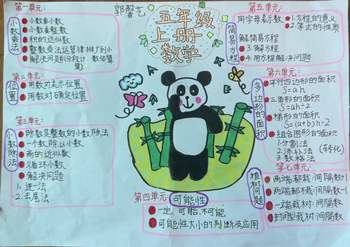 郭智艺
五年级
上册
数学
第一单元:
小数乘法
小数乘小数
小数乘整数
积的近似数
整数乘法运算律推广到小数
解决问题
第二单元:
位置
用数对表示位置
用数对确定位置
第三单元:
小数除法
除数是整数的小数除法
一个数除以小数
商的近似数
循环小数
解决问题
1.进一法
2.去尾法
第四单元:
可能性
一定,可能,不可能
可能性大小的判断及应用
第五单元:
简易方程
用字母表示数
1.方程的意义
2.等式的性质
解简易方程
3.解方程
4.用方程解决问题
第六单元:
多边形的面积
平行四边形的面积
S=ah
三角形的面积
S=ah÷2
梯形的面积
S=(a+b)h÷2
组合图形的面积
1.分割法
2.添补法
(转化)
3.数格法
第七单元:
植树问题
两端都栽:间隔数+1
两端都不栽:间隔数-1
一端栽树:间隔数
封闭栽树:间隔数